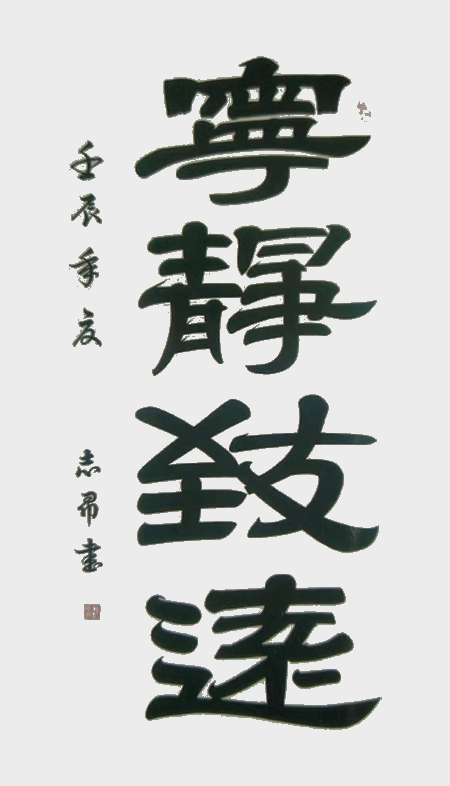 寧靜致遠
壬辰年夏 志昂書